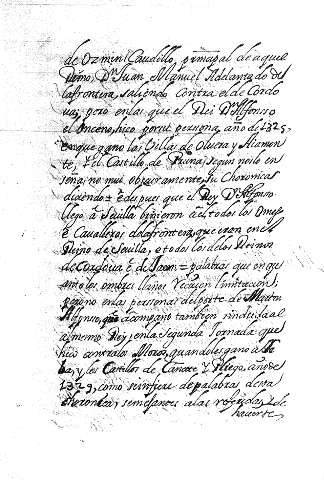 de Ozmin Caudillo, principal de aquel
Reino, Dn. Juan Manuel Adelantado de
la frontera, saliendo contra el de Cordo
va; pero en las que el Rei Dn. Alfonso
el Onceno, hico por su persona, año de 1327,
en que gano las Villas de Olvera y Aiamon
te, y el Castillo de Pruna; segun no lo en
seña, no mui obscuramente, su Choronica
diciendo = E despues que el Rey Dn. Alfonso
llego a Sevilla vinieron a el todos los Omes
e Cavalleros de la frontera, que eran en el
Reino de Sevilla, e todos los de los Reinos
de Cordova e de Jaen = palabras que en que
a solos ombres llanos limitacion;
pero no en las personas del porte de Martin
Alfonso, que acompaño tambien
al mesmo Rey, en la segunda Jornada que
hico contra los Moros, quando les gano a Te
ba, y los Castillos de Cañete y Pliego, año de
1329, como se infiere de palabras de esta
choronica, semejantes a las referidas, y de
hacerse